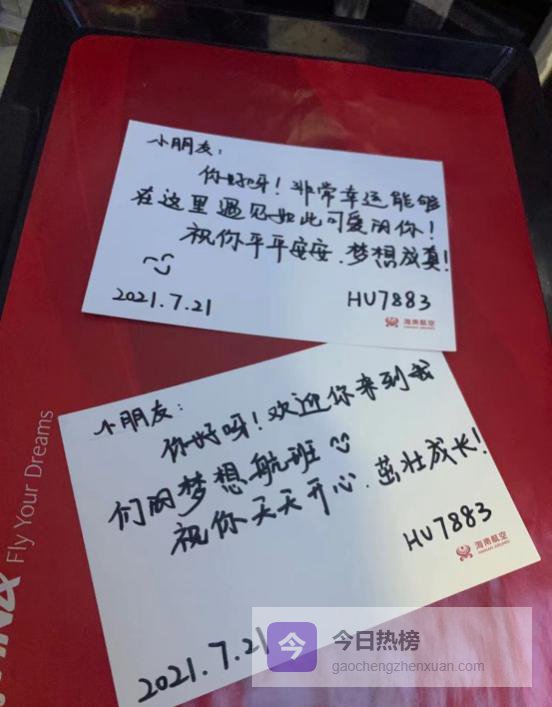 小朋友：
你好呀！非常幸运能够
在这里遇见如此可爱的你！
祝你平平安安、梦想成真！
2021.7.21
HU7883
海南航空
小朋友：
你好呀！欢迎你来到我
们的梦想航班
祝你天天开心、茁壮成长！
HU7883
海南航空
HAINAN AIRLINES
2021.7.21
Fly Your Dreams
今
今日热榜
gaochengzhenxuan.com